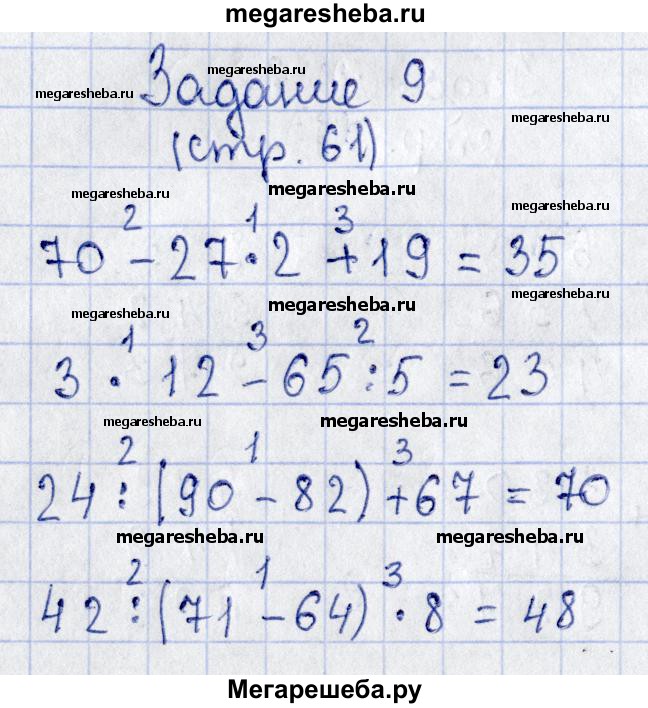 megaresheba.ru
megaresheba.ru
megaresheba.ru
Задание 9
megaresheba.ru
(стр. 61)
megaresheba.ru
megaresheba.ru
megaresheba.ru
2 1 3
70 - 27 · 2 + 19 = 35
megaresheba.ru
megaresheba.ru
megaresheba.ru
1 3 2
3 · 12 - 65 : 5 = 23
megaresheba.ru
megaresheba.ru
2 1 3
24 : (90 - 82) + 67 = 70
megaresheba.ru
megaresheba.ru
2 1 3
42 : (71 - 64) · 8 = 48
Мегарешеба.ру